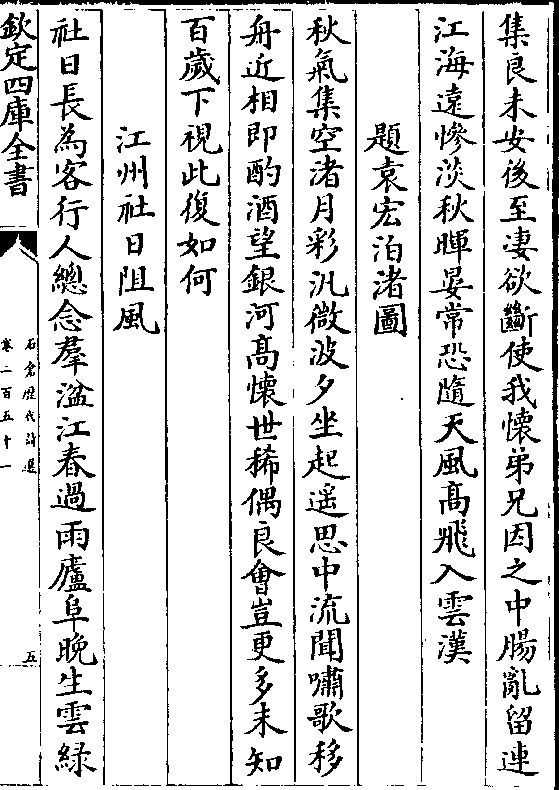 集良未安後至凄欲斷使我懷弟兄因之中腸亂留連
江海遠慘淡秋暉晏常恐隨天風髙飛入雲漢
題袁宏泊渚圖
秋氣集空渚月彩汎微波夕坐起遥思中流聞嘯歌移
舟近相即酌酒望銀河髙懷世稀偶良會豈更多未知
百歲下視此復如何
江州社日阻風
社日長為客行人總念羣湓江春過雨廬阜晚生雲緑
欽定四庫全書
石倉歴代詩選
卷二百五十一
五